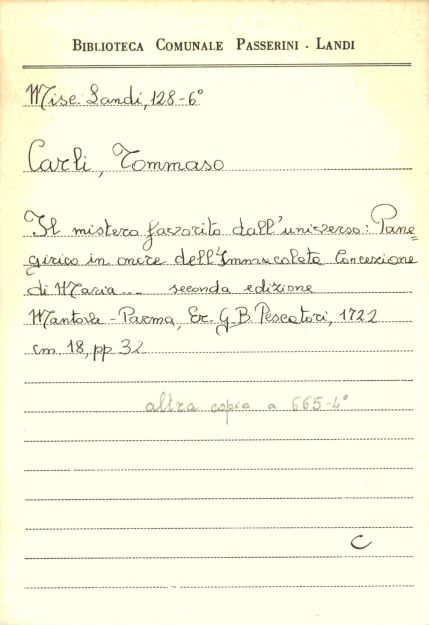 BIBLIOTECA COMUNALE PASSERINI - LANDI
Misc. Landi, 128-6°
Carli, Tommaso
Il mistero favorito dall'universo: Pane=
girico in onore dell'Immacolata Concezione
di Maria ... seconda edizione
Mantova - Parma, Er. G. B. Pescatori, 1722
cm 18, pp 32
altra copia a 665-4°
C